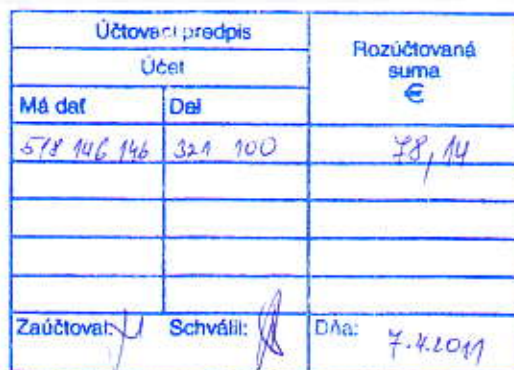 Účtovací predpis
Účet
Rozúčtovaná suma €
Má dať Dal
518 146 146 321 100 78,14
Zaúčtoval: Schválil: Dňa: 7.4.2011